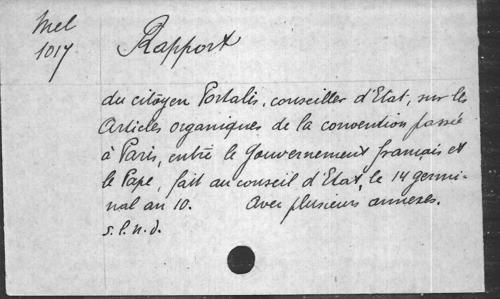 Mel
1017
Rapport
du citoyen Portalis, conseiller d'Etat, sur les
Articles organiques de la convention passée
à Paris, entre le Gouvernement français et
le Pape, fait au conseil d'Etat, le 14 germi-
nal an 10. Avec plusieurs annexes.
s.l.n.d.